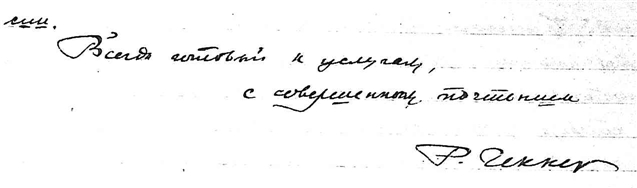 сии.
Всегда готовый к услугам,
с совершенным почтением
Р. Геккер